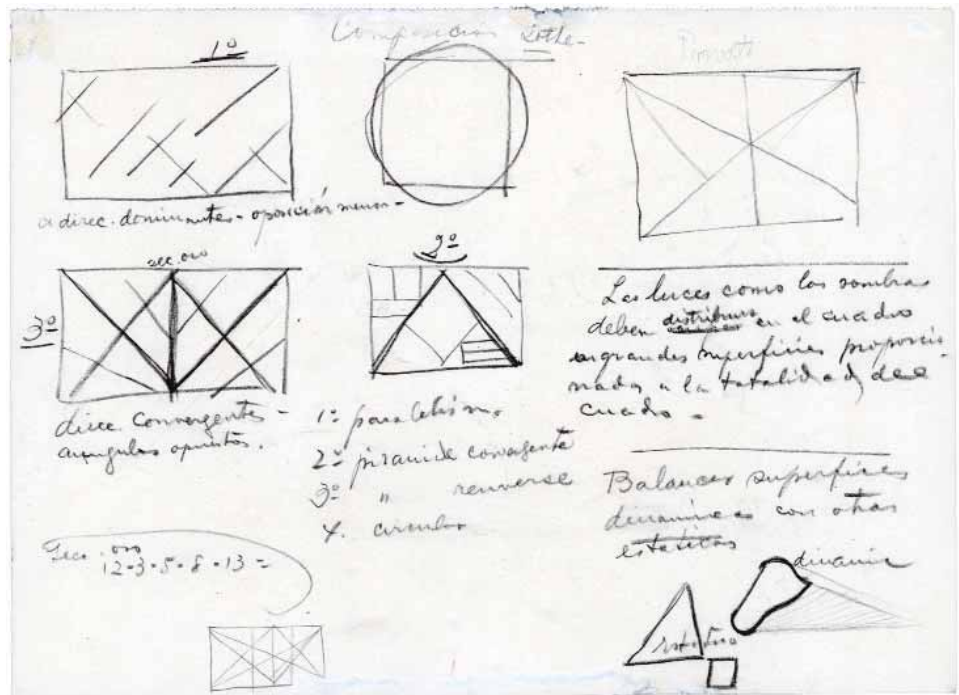 Composicion Lothe-
1º
a direc. dominantes - oposición menor -
sec. oro
3º
direc. convergentes -
opuestos.
2º
1º paralelismo
2º piramide convergente
3º " renverse
4. circulos
Secc. oro
12-3-5-8-13=
Las luces como las sombras
deben distribuirse en el cuadro
en grandes superficies proporcio
nadas a la totalidad del
cuadro =
Balancear superficies
dinamicas con otras
estaticas
dinamic
estatico